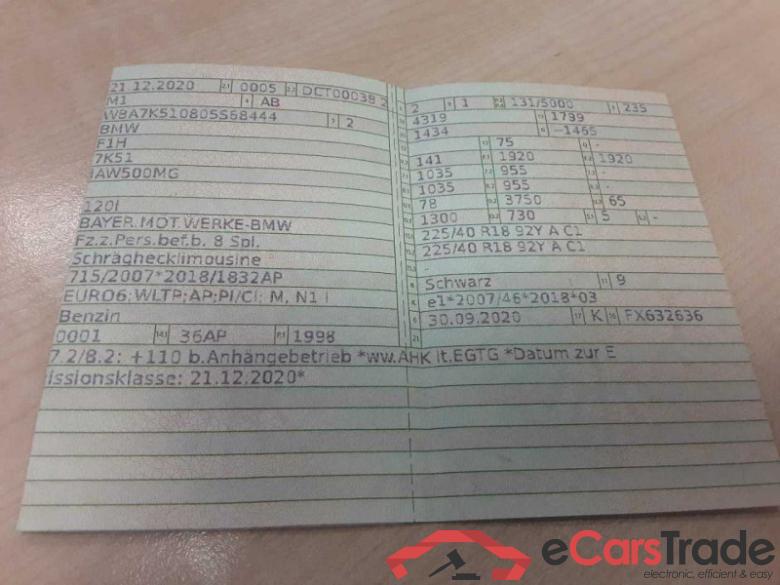 21 12.2020 0005 DCT00038 2
M1 AB
WBA7K510805S68444 7 2
BMW
F1H
7K51
IAW500MG
120I
BAYER.MOT.WERKE-BMW
Fz.z.Pers.bef.b. 8 Spl.
Schräghecklimousine
715/2007*2018/1832AP
EURO6;WLTP;AP;PI/CI; M, N1 I
Benzin
0001 36AP 1998
2 1 131/5000 235
4319 1799
1434 -1465
75 -
141 1920 1920
1035 955 -
1035 955 -
78 3750 65
1300 730 5 -
225/40 R18 92Y A C1
225/40 R18 92Y A C1
-
Schwarz 9
e1*2007/46*2018*03
30.09.2020 K FX632636
7.2/8.2: +110 b.Anhängebetrieb *ww.AHK lt.EGTG *Datum zur E
issionsklasse: 21.12.2020*
eCarsTrade
electronic, efficient & easy